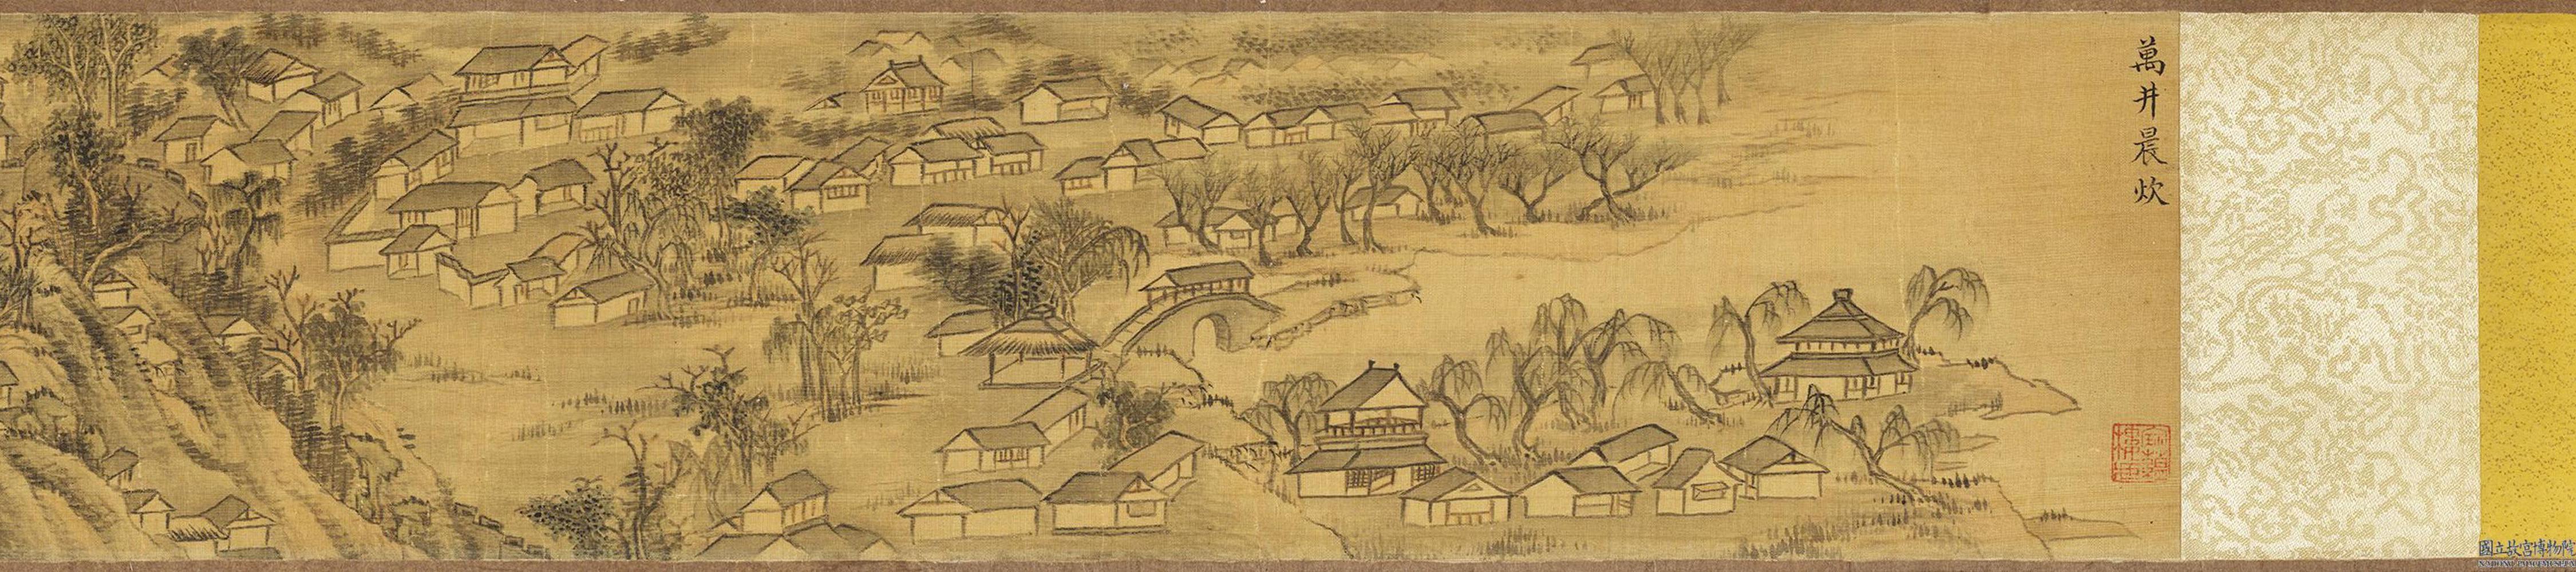 萬井晨炊
國立故宮博物院
NATIONAL PALACE MUSEUM